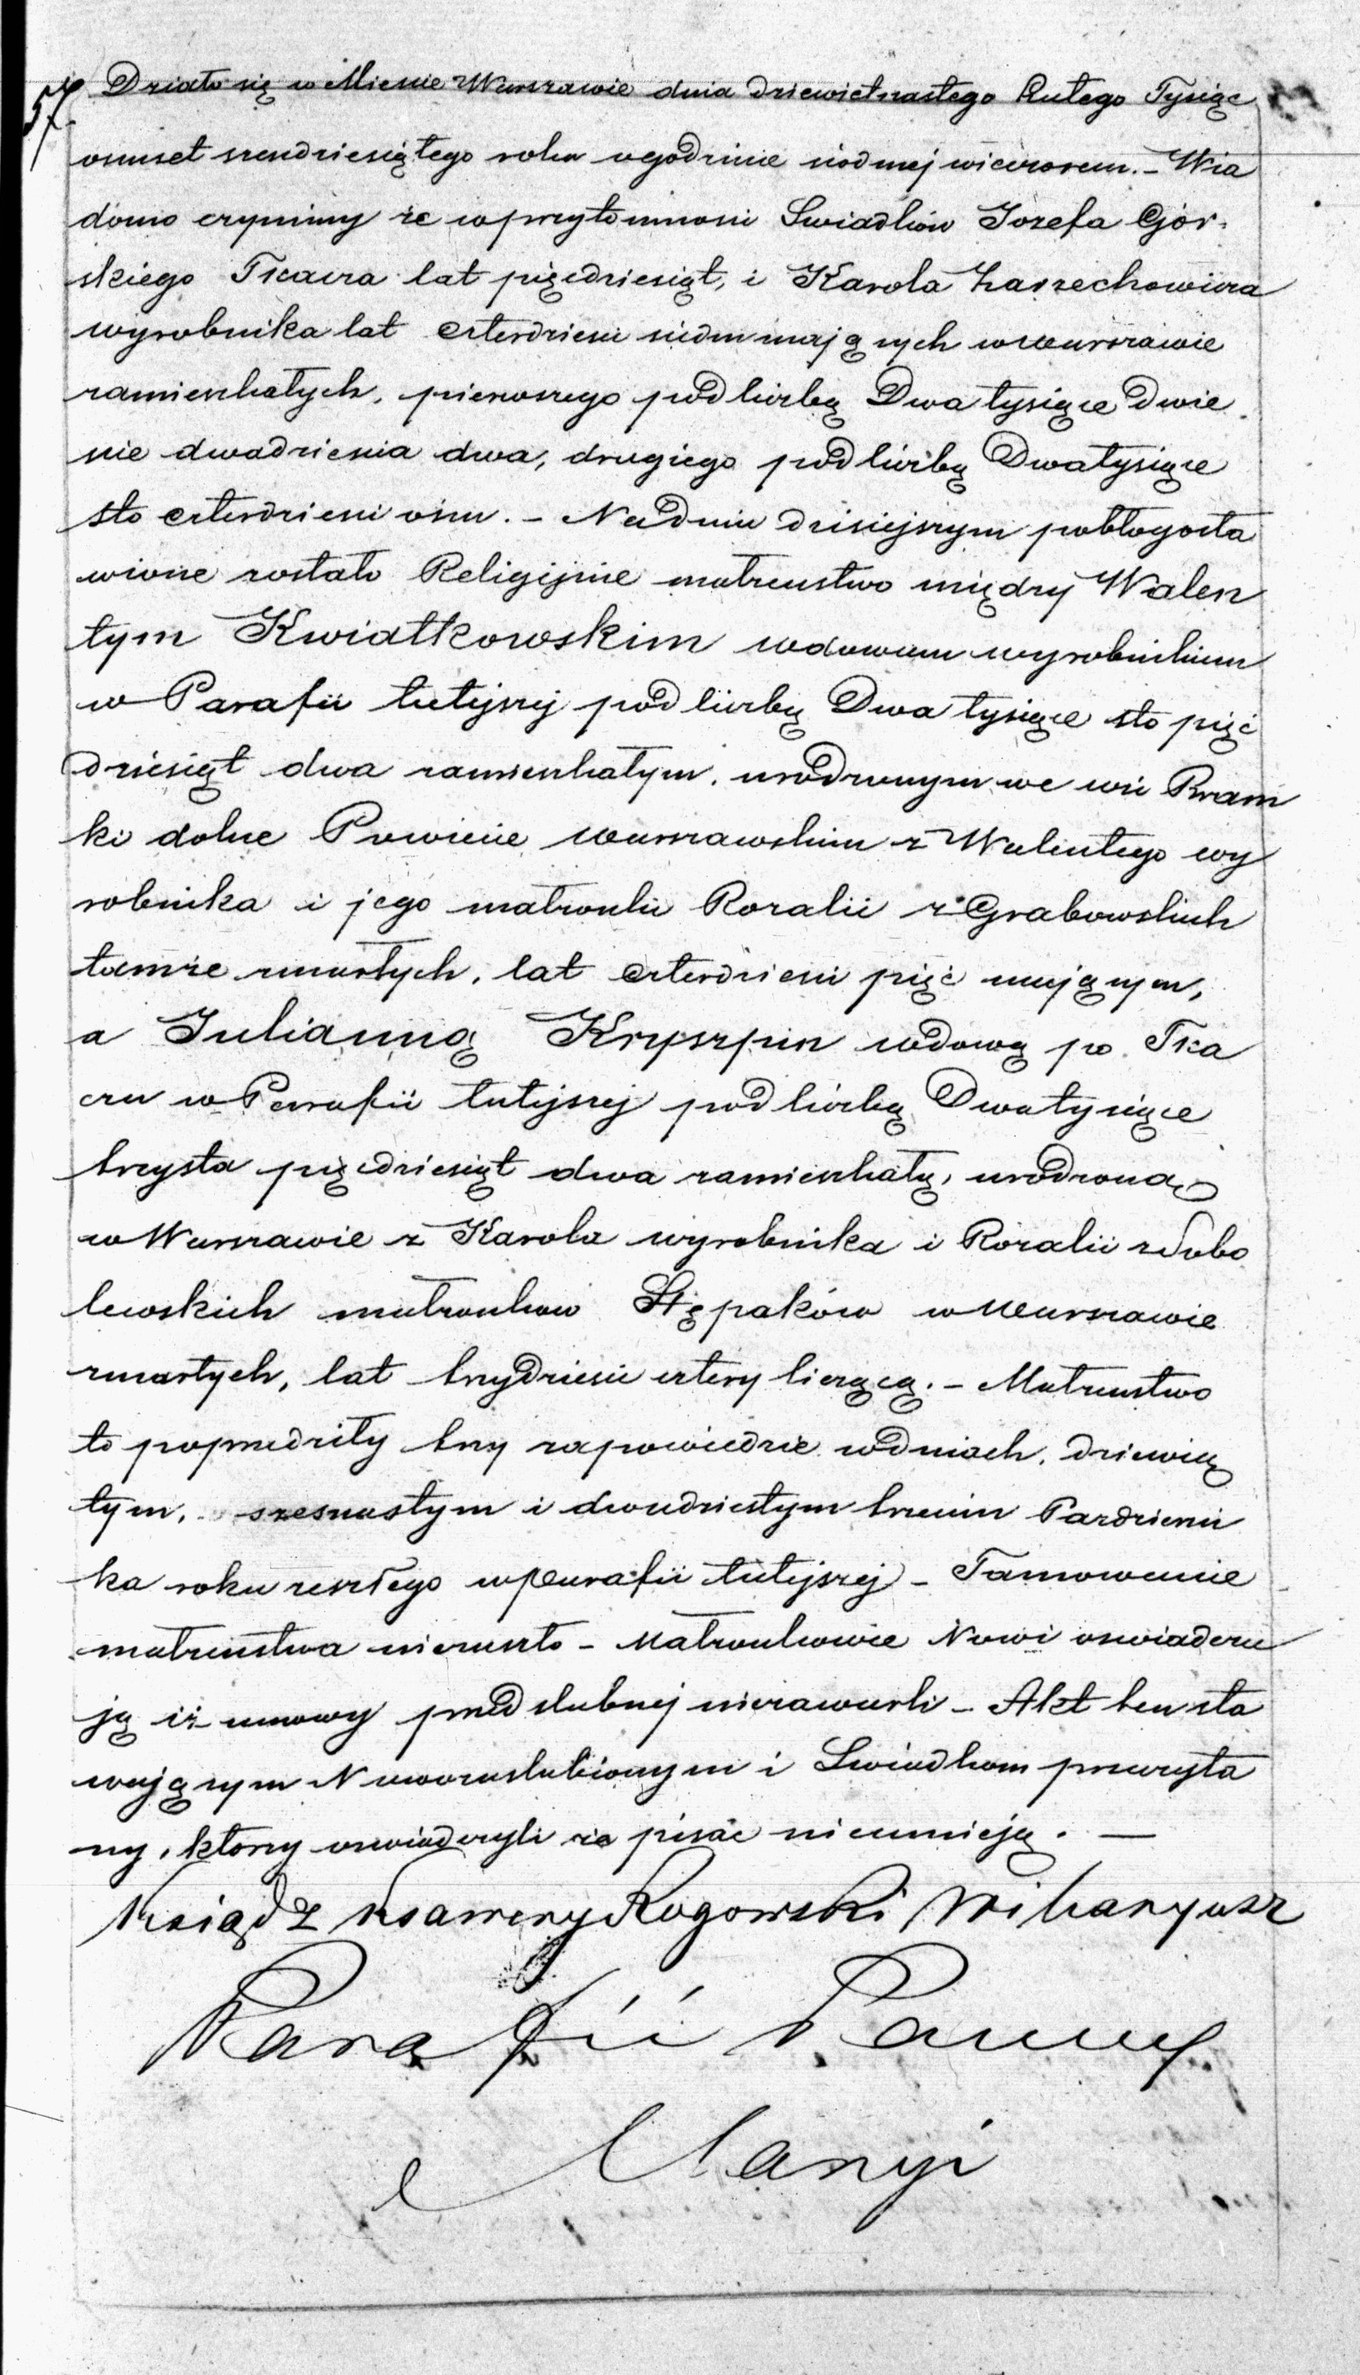 57. Działo się w Mieście Warszawie dnia dziewietnastego Lutego Tysiąc
osmset szesdziesiątego roku o godzinie siodmej wieczorem. – Wia
domo czynimy że w przytomnosci Swiadków Jozefa Gór-
skiego Tkacza lat pięćdziesiąt, i Karola Laszechowicza
wyrobnika lat czterdzieści siedm mających w Warszawie
zamieszkałych, pierwszego pod liczbą Dwa tysiące dwie
scie dwadzieścia dwa, drugiego pod liczbą Dwa tysiące
sto czterdzieści ośm. – Na dniu dzisiejszym pobłogosła
wione zostało Religijnie małżeństwo między Walen
tym Kwiatkowskim wdowcem wyrobnikiem
w Parafii tutejszej pod liczbą Dwa tysiące sto pięć
dziesiąt dwa zamieszkałym, urodzonym we wsi Bram
ki dolne Powiecie Warszawskim z Walentego wy
robnika i jego małżonki Rozalii z Grabowskich
tamże zmarłych, lat czterdzieści pięć mającym,
a Julianną Kryszpin wdową po Tka
czu w Parafii tutejszej pod liczbą Dwa tysiące
trzysta pięćdziesiąt dwa zamieszkałą, urodzoną
w Warszawie z Karola wyrobnika i Rozalii z Sobo
lewskich małżonków Stępaków w Warszawie
zmarłych, lat trzydzieści cztery liczącą. – Małżeństwo
to poprzedziły trzy zapowiedzie w dniach, dziewią
tym, szesnastym i dwudziestym trzecim Pazdzierni
ka roku zeszłego w Parafii tutejszej – Tamowanie
małżeństwa nie zaszło – Małżonkowie Nowi oswiadcza
ją iż umowy przedslubnej niezawarli – Akt ten sta
wającym Nowozaslubionym i Swiadkom przeczyta
ny, którzy oswiadczyli że pisać nieumieją. –
Ksiądz Ksawery Rogowski Wikaryusz
Parafii P. Panny
Maryi